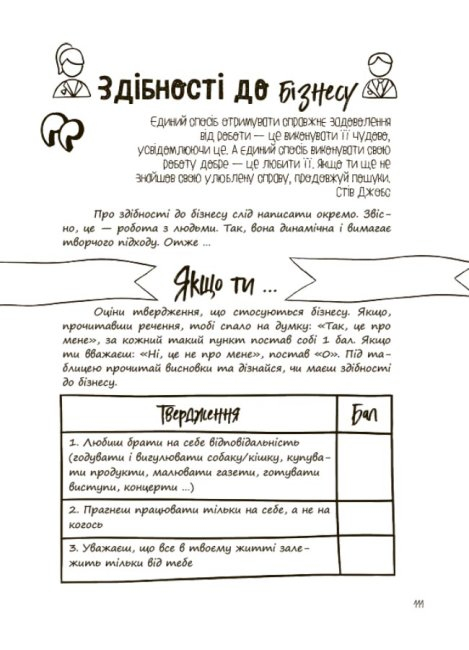 Здібності до бізнесу
Єдиний спосіб отримувати справжнє задоволення
від роботи — це виконувати її чудово,
усвідомлюючи це. А єдиний спосіб виконувати свою
роботу добре — це любити її. Якщо ти ще не
знайшов свою улюблену справу, продовжуй пошуки.
Стів Джобс
Про здібності до бізнесу слід написати окремо. Звіс-
но, це — робота з людьми. Так, вона динамічна і вимагає
творчого підходу. Отже ...
Якщо ти ...
Оціни твердження, що стосуються бізнесу. Якщо,
прочитавши речення, тобі спало на думку: «Так, це про
мене», за кожний такий пункт постав собі 1 бал. Якщо
ти вважаєш: «Ні, це не про мене», постав «0». Під та-
блицею прочитай висновки та дізнайся, чи маєш здібності
до бізнесу.
Твердження Бал
1. Любиш брати на себе відповідальність
(годувати і вигулювати собаку/кішку, купува-
ти продукти, малювати газети, готувати
виступи, концерти ...)
2. Прагнеш працювати тільки на себе, а не на
когось
3. Уважаєш, що все в твоєму житті зале-
жить тільки від тебе
111